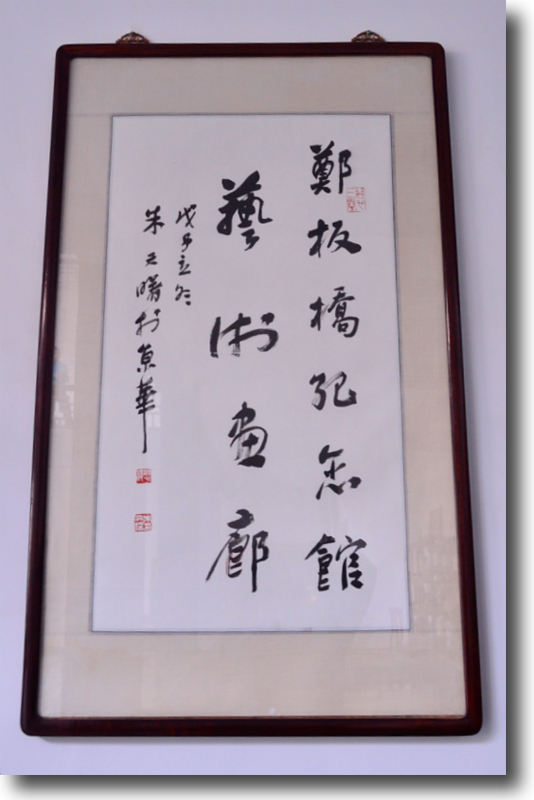 鄭板橋紀念館
藝術畫廊
戊子立冬
朱天曙於京華